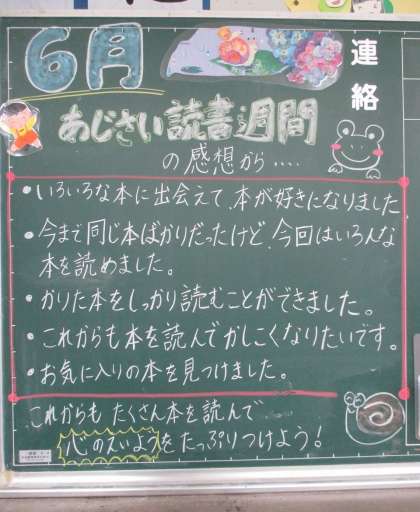 6月
連絡
あじさい読書週間
の感想から‥‥
・いろいろな本に出会えて、本が好きになりました
・今まで同じ本ばかりだったけど、今回はいろんな
本を読めました。
・かりた本をしっかり読むことができました。
・これからも本を読んでかしこくなりたいです。
・お気に入りの本を見つけました。
これからも たくさん本を読んで
心のえいようをたっぷりつけよう！